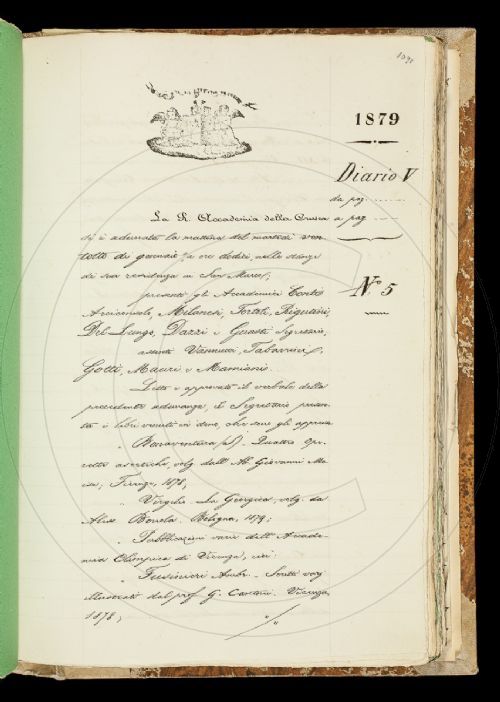 1879
Diario V
da pag.
La R. Accademia della Crusca a pag.
si è adunata la mattina del martedì ven
totto di gennaio, a ore dodici, nelle stanze
di sua residenza in San Marco;
Nº 5
presenti gli Accademici Conti
Arciconsolo, Milanesi, Tortoli, Rigutini,
Del Lungo, Dazzi e Guasti Segretario,
assenti Vannucci, Tabarrini,
Gotti, Mauri e Mamiani.
Letto e approvato il verbale della
precedente adunanza, il Segretario presen
ta i libri venuti in dono, che sono gli appresso
Bonaventura (S) - Quattro ope
rette ascetiche, volg. dall' Ab. Giovanni
Firenze, 1878;
Virgilio - La Georgica, volg. da
Bologna, 1879;
Pubblicazioni varie dell' Accade
mia Olimpica di Vicenza, cioè:
Ambr. - Scritti varj
illustrati dal prof. G. Vicenza,
1878;